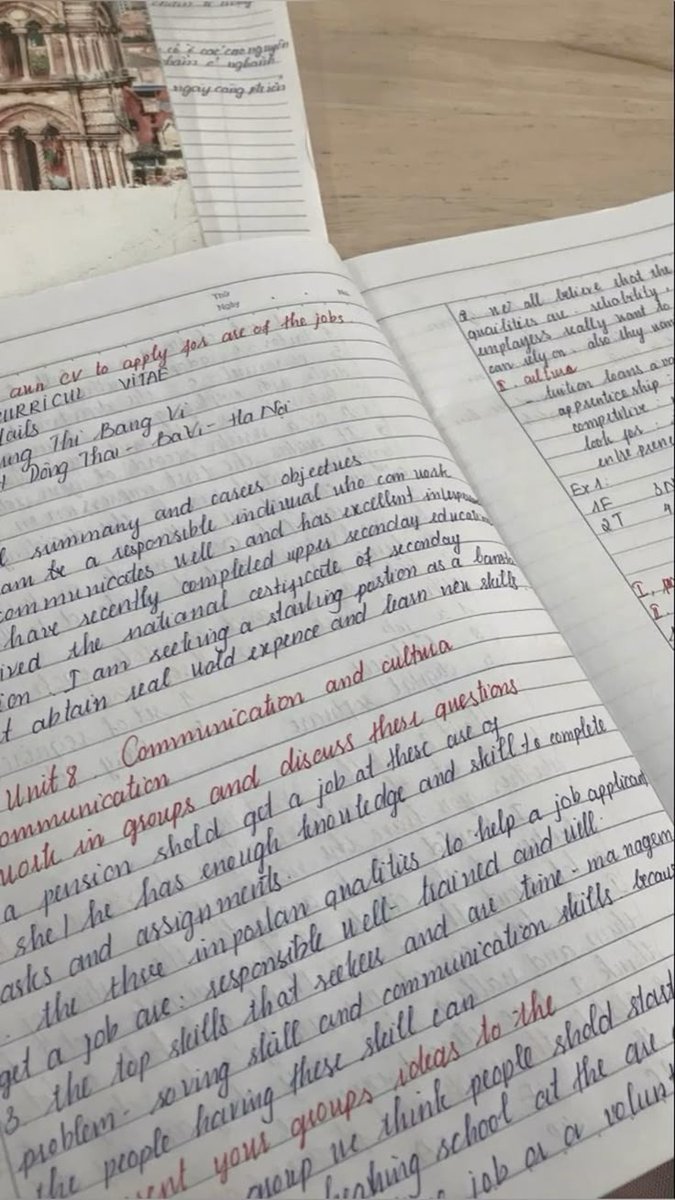 có ở các cao nguyên
ngày càng
Thứ
Ngày
No
cv to apply for are of the jobs
CURRICUL VITAE
tails
Thi Bang Vi
Dông Thai - BaVi - Ha Nội
summany and casees objectues
am be a responsible indiriual who can work
communicates well, and has excellent
have recently completed upper seconday
ived the national of seconday
ion. I am seeking a starling postion as a
t abtain real wold expence and learn new skills
Unit 8. Communication and cultura
ommunication
work in groups and discuss these questions
a pension shold get a job at these are of
she/he has enough knowledge and skill to complete
asks and assignments.
the three imporlan qualities to help a job applicant
get a job are: responsible well-trained and will
3 the top skills that seekers and are time-managem
problem-soving skill and communication skills becau
the people having these skill can
ent your groups ideas to the
group we think people shold start
school at the are
job or a volunt
2. we all believe that the
quailities are reliability,
employers really want to
can rely on. also they
I culture
- tuition loans
apprentice ship:
competitive:
look for:
Ex1:
1F
2T
I.
II.